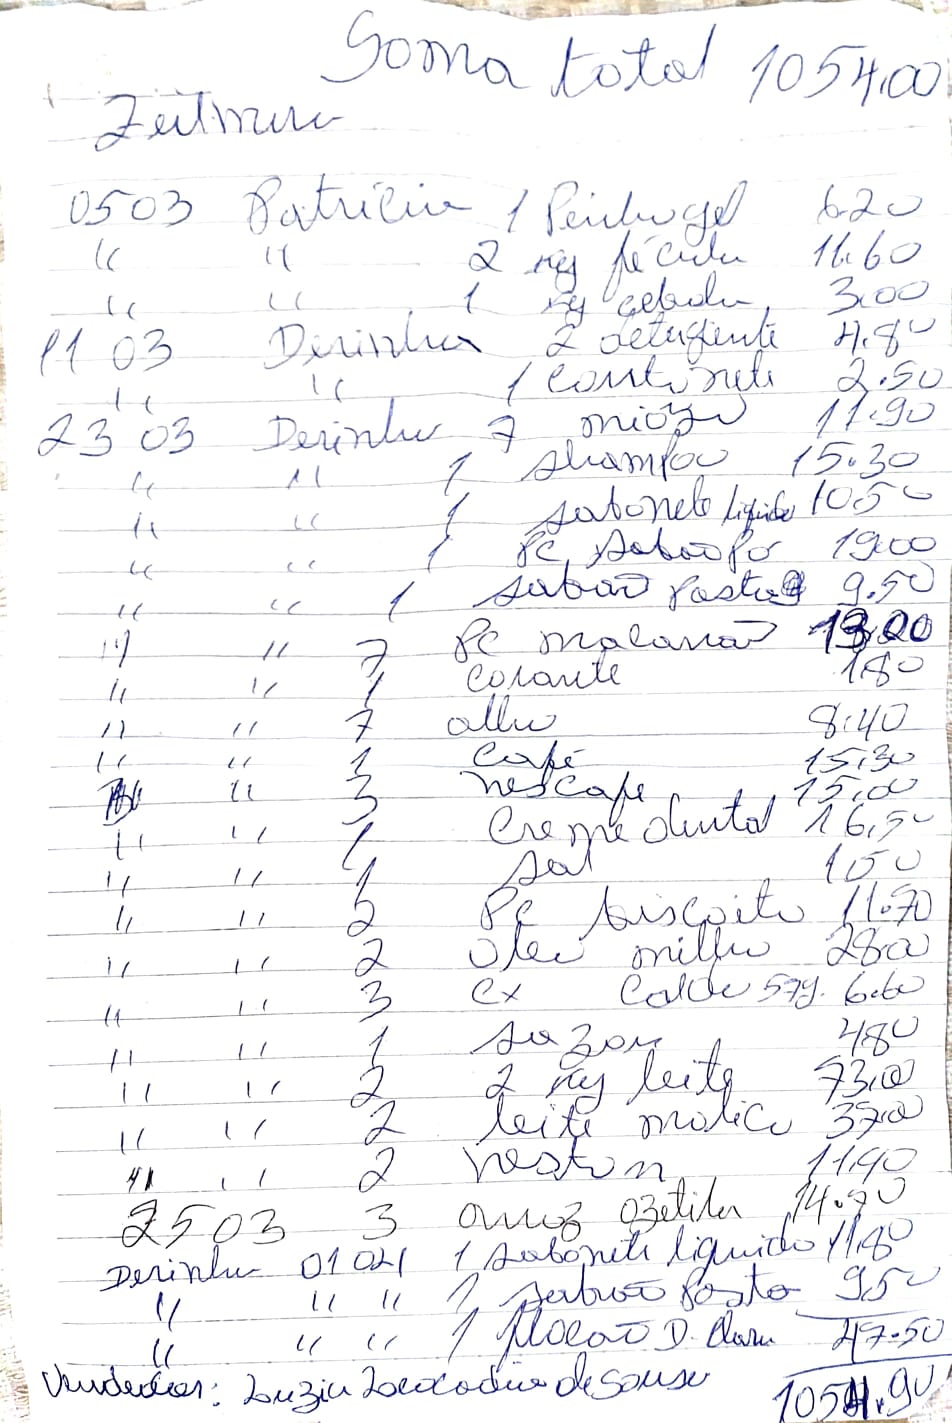 Soma total 1054,00
Zeitmire
0503 Patrícia 1 Peixe gel 6.20
" " 2 kg fécula 11.60
" " 1 kg cebola 3.00
11 03 Derinha 2 detergente 4.80
" " 1 contonete 2.50
23 03 Derinha 7 miojo 11.90
" " 1 shampoo 15.30
" " 1 sabonete liquido 10,50
" " 1 Pc sabão Pó 19.00
" " 1 sabão Pasta 9.50
" " 7 Pc macarrão 13,00
" " 1 corante 1.80
" " 7 alho 8.40
" " 1 café 15,30
" 3 nescafe 15,00
" " 1 creme dental 16,50
" " 1 sal 150
" " 2 Pc biscoito 11.70
" " 2 oleo milho 28.00
" " 3 cx Caldo 57g. 6.60
" " 1 sazon 480
" " 2 2 kg leite 73,00
" " 2 leite molico 37.00
" " 2 neston 11,90
25 03 3 arroz ozetila 14.70
Derinha 01 04 1 sabonete liquido 11.80
" " " 1 sabão Pasta 9,50
" " " 1 D. 47.50
Vendedor: Luzia Leocadia de Sousa 1054.90